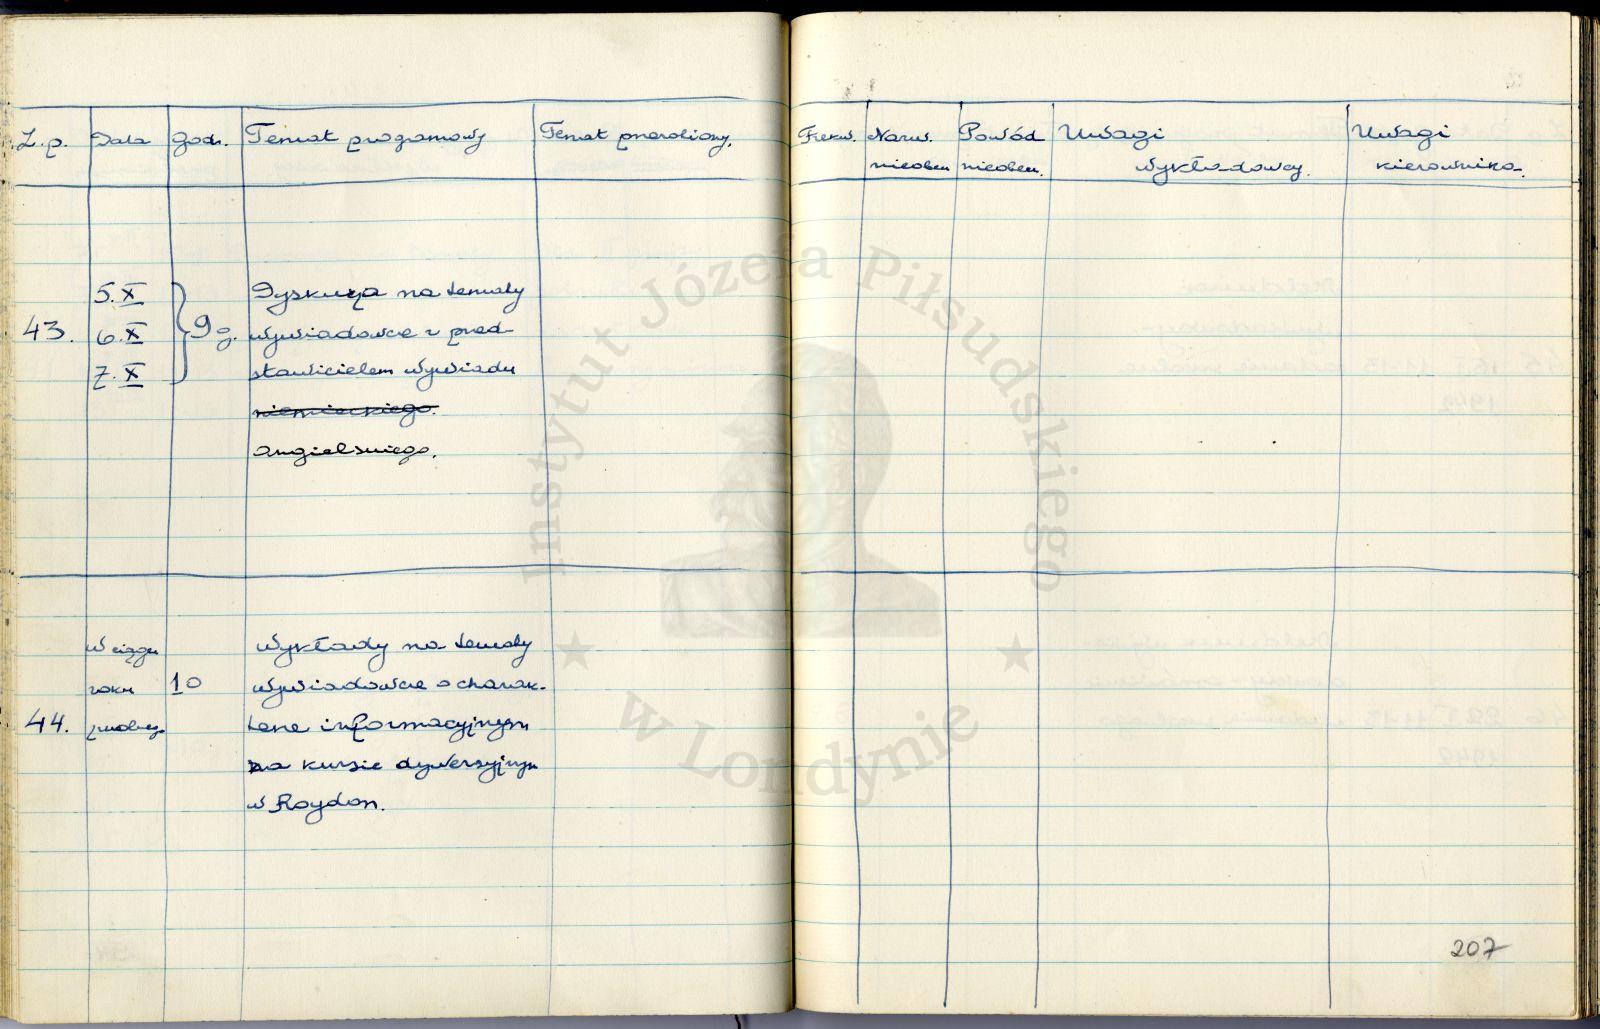 L.p. Data godz. Temat programowy Temat przerobiony. Frekw. Nazw. Powód Uwagi Uwagi
nieoben nieoben. wykładowcy. kierownika.
5.X Dyskusja na tematy
43. 6.X 9 g. wywiadowcze z przed-
7.X stawicielem wywiadu
niemieckiego.
angielskiego.
W ciągu wykłady na tematy
roku 10 wywiadowcze o charak-
44. terze informacyjnym
na kursie dywersyjnym
w Roydon.
207
Instytut Józefa Piłsudskiego
w Londynie